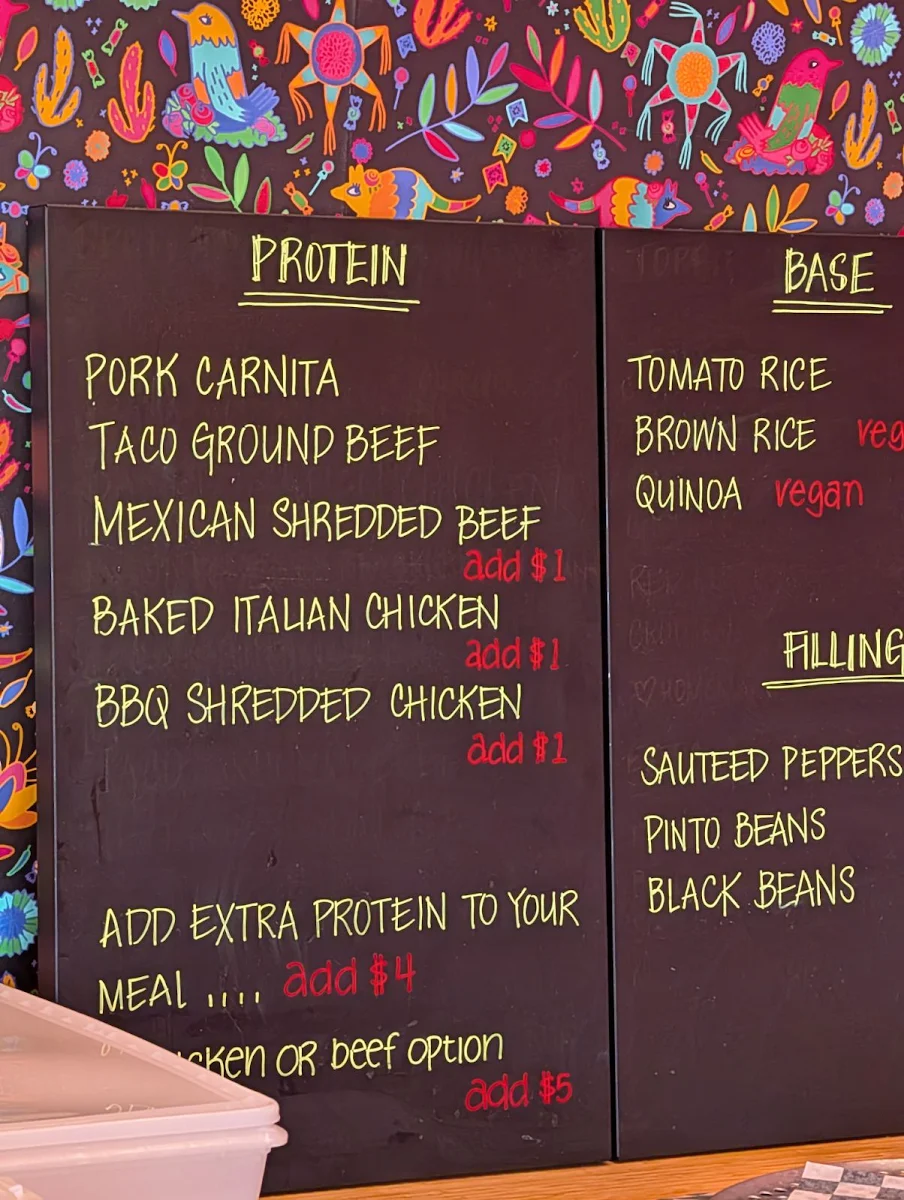 PROTEIN
PORK CARNITA
TACO GROUND BEEF
MEXICAN SHREDDED BEEF
add $1
BAKED ITALIAN CHICKEN
add $1
BBQ SHREDDED CHICKEN
add $1
ADD EXTRA PROTEIN TO YOUR
MEAL .... add $4
OR beef option
add $5
BASE
TOMATO RICE
BROWN RICE veg
QUINOA vegan
FILLING
SAUTEED PEPPERS
PINTO BEANS
BLACK BEANS